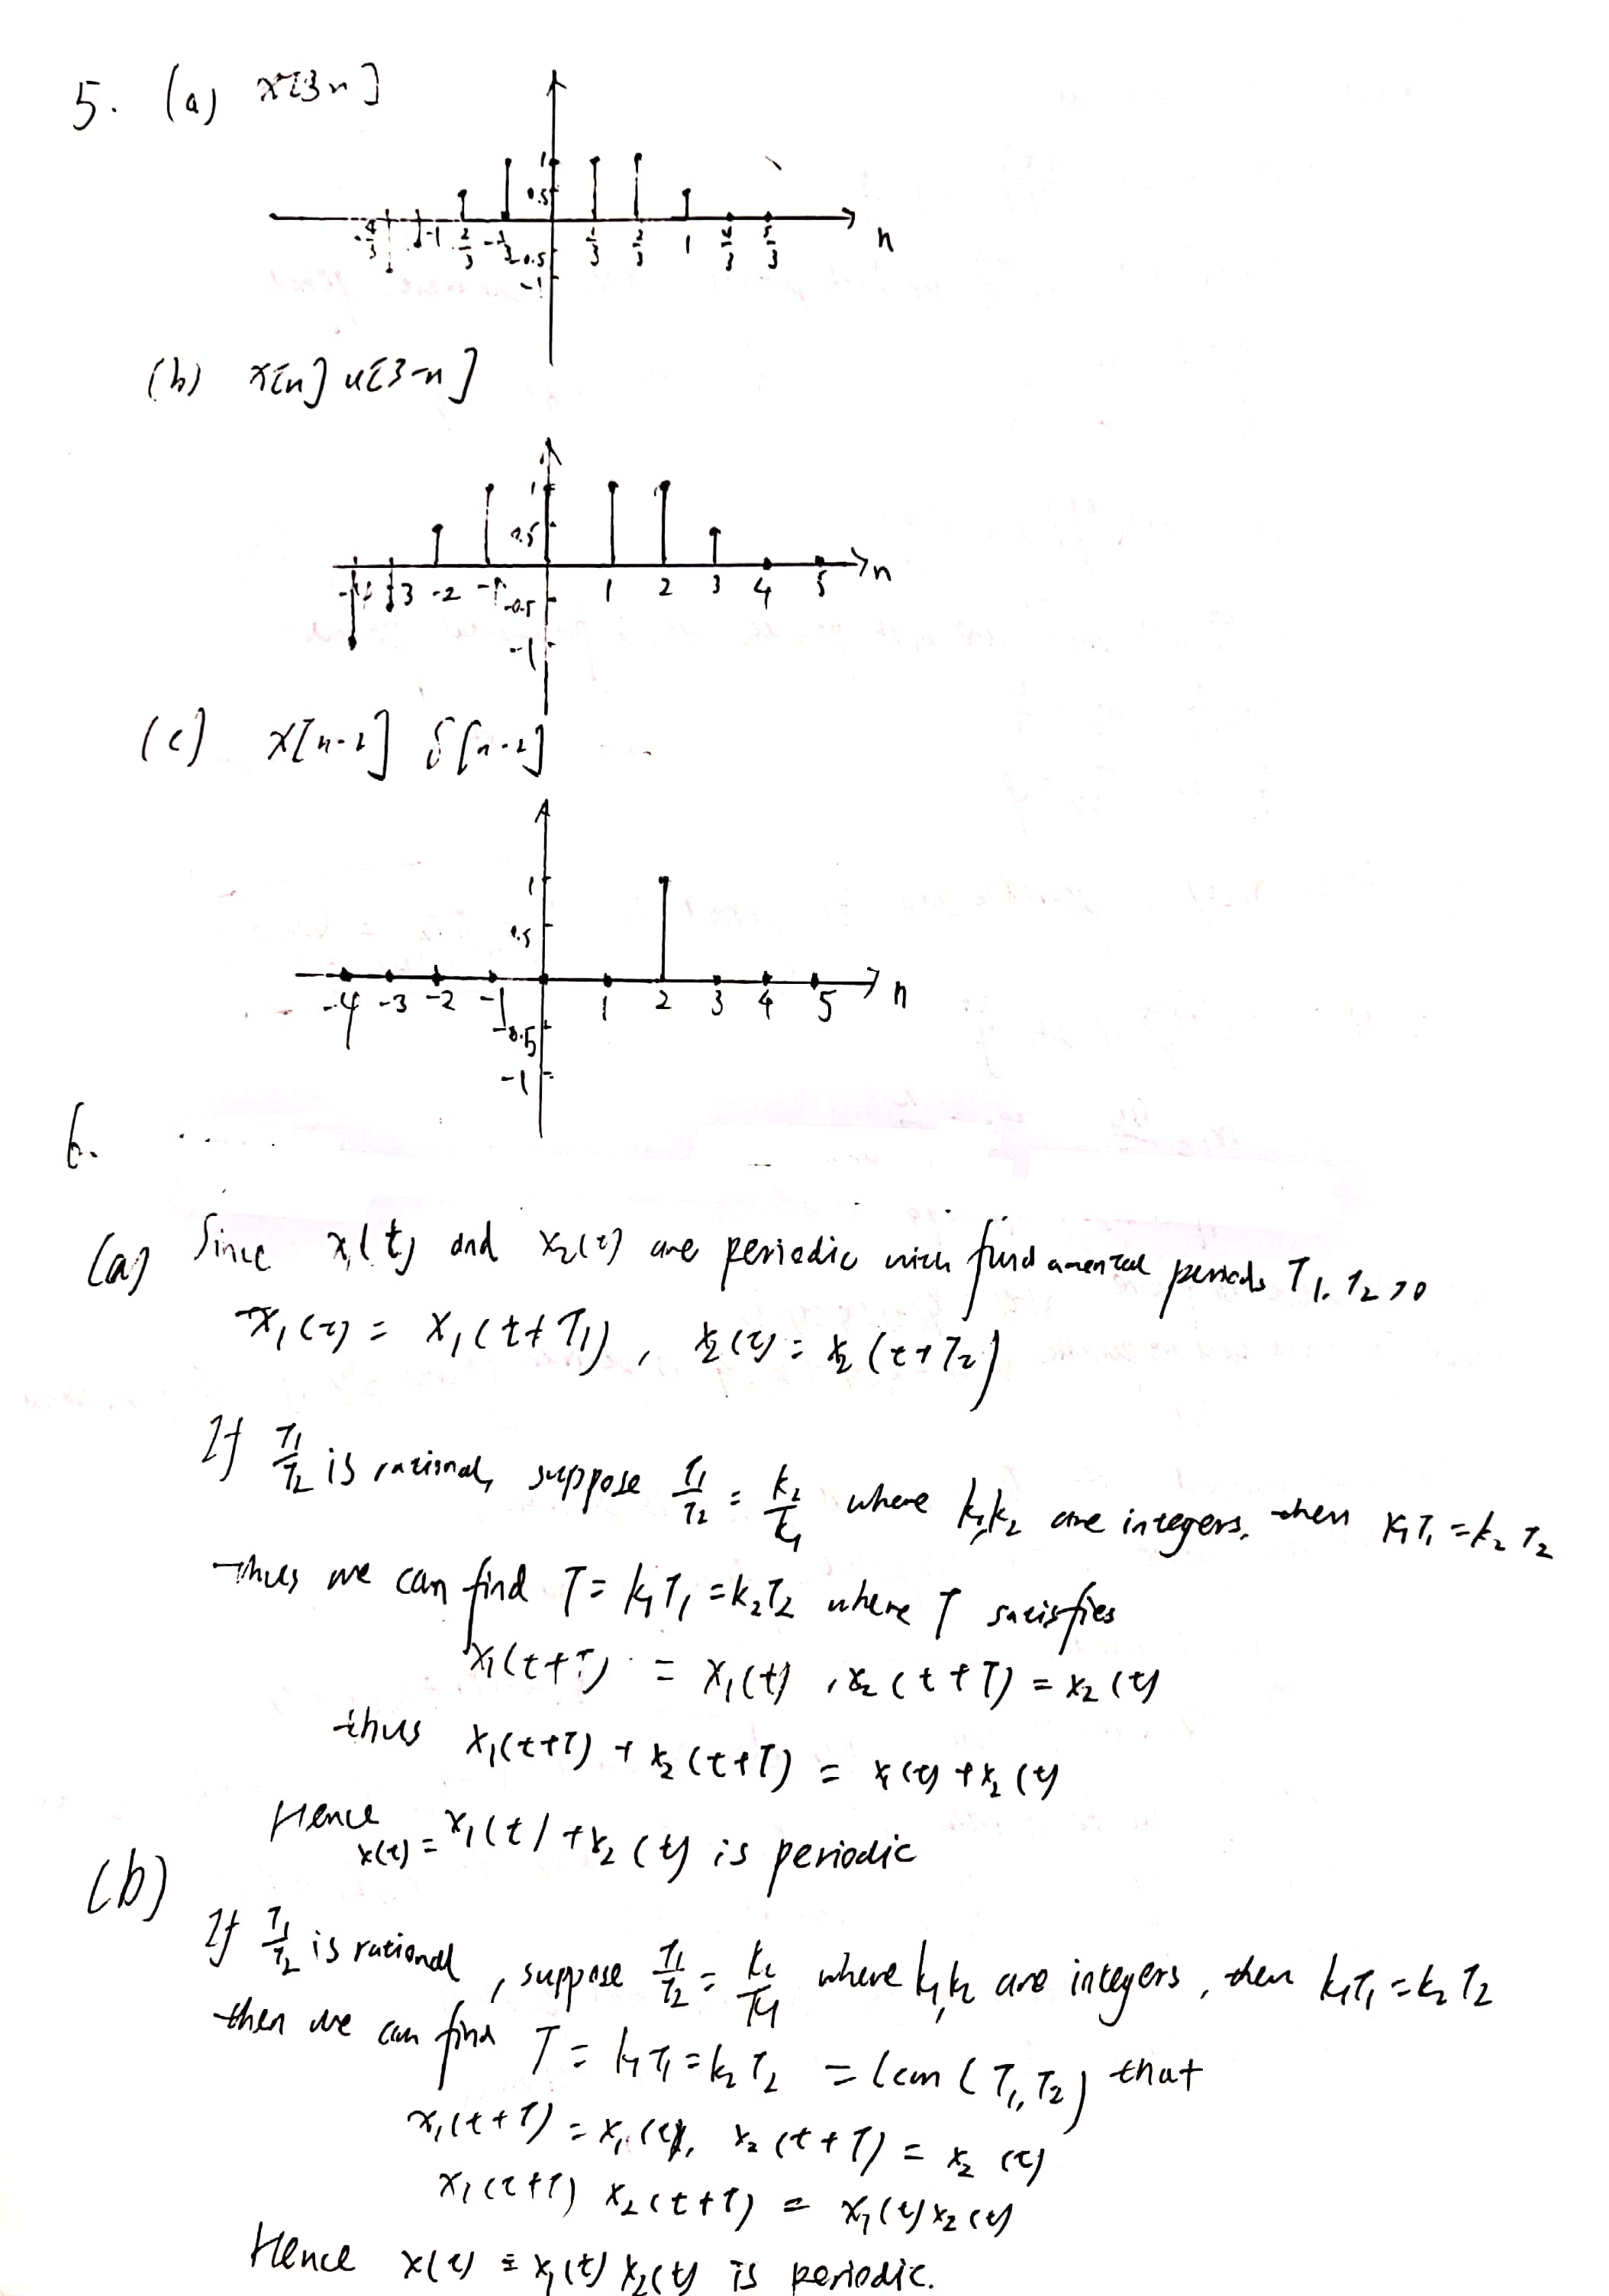 5. (a) x[3n]
1
0.5
-4/3 -1 2/3 -1/3 1/3 2/3 1 4/3 5/3 n
-0.5
-1
(b) x[n] u[3-n]
1
0.5
-4 -3 -2 -1 1 2 3 4 5 n
-0.5
-1
(c) x[n-2] δ[n-2]
1
0.5
-4 -3 -2 -1 1 2 3 4 5 n
-0.5
-1
6.
(a) Since x₁(t) and x₂(t) are periodic with fundamental periods T₁, T₂ >0
x₁(t) = x₁(t+T₁), x₂(t) = x₂(t+T₂)
If T₁/T₂ is rational, suppose T₁/T₂ = k₂/k₁ where k₁,k₂ are integers, then k₁T₁ = k₂T₂
Thus we can find T = k₁T₁ = k₂T₂ where T satisfies
x₁(t+T) = x₁(t), x₂(t+T) = x₂(t)
thus x₁(t+T) + x₂(t+T) = x₁(t) + x₂(t)
Hence x(t) = x₁(t) + x₂(t) is periodic
(b)
If T₁/T₂ is rational, suppose T₁/T₂ = k₂/k₁ where k₁,k₂ are integers, then k₁T₁ = k₂T₂
then we can find T = k₁T₁ = k₂T₂ = lcm(T₁,T₂) that
x₁(t+T) = x₁(t), x₂(t+T) = x₂(t)
x₁(t+T) x₂(t+T) = x₁(t) x₂(t)
Hence x(t) = x₁(t) x₂(t) is periodic.